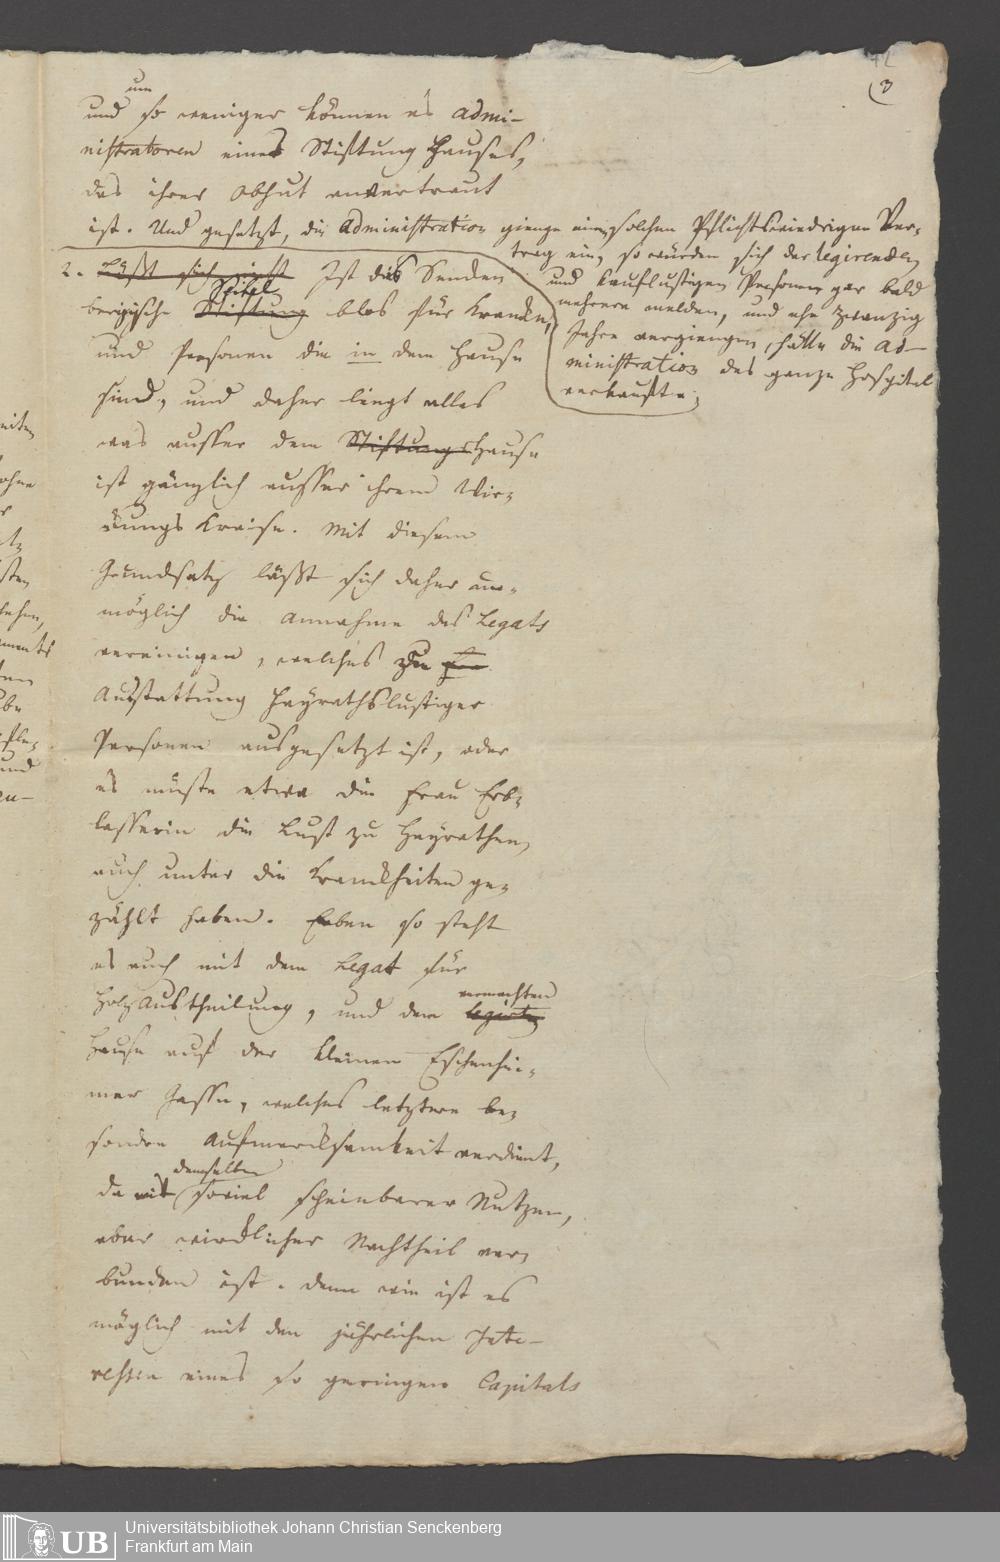 (3
um
und so weniger können es Admi-
nistratoren eines Stiftung Hauses,
das ihrer Obhut anvertraut
ist. Und gesetzt, die Administration gienge einen solchen Pflichtswiedrigen Ver-
trag ein, so würden sich der legirenden
und Kauflustigen Personen gar bald
mehrere melden, und ehe zwanzig
Jahre vergiengen, hätte die Ad-
ministration das ganze Hospital
verkauft.
2. Läßt sich nicht Ist das Senken
Spital
bergische Stiftung blos für Kranke,
und Personen die in dem Hause
sind, und daher liegt alles
was ausser dem Stiftungs Hause
ist gänzlich ausser ihrem Wir-
kungs Kreise. Mit diesem
Grundsatz läßt sich daher un-
möglich die Annahme des Legats
vereinigen, welches zu
Ausstattung Heyrathslustiger
Personen ausgesetzt ist, oder
es müste etwa die Frau Erb-
lasserin die Lust zu Heyrathen,
auch unter die Krankheiten ge-
zählt haben. Eben so steht
es auch mit dem Legat für
vermachten
Holz Austheilung, und dem legirten
Hause auf der kleinen Eschenhei-
mer Gasse, welches letztere be-
sondre Aufmerksamkeit verdient,
demselben
da mit soviel scheinbarer Nutzen,
aber wirklicher Nachtheil ver-
bunden ist. Denn wie ist es
möglich mit den jährlichen Inte-
ressen eines so geringen Capitals
eiten
ohne
sten
ments
und
UB
Universitätsbibliothek Johann Christian Senckenberg
Frankfurt am Main